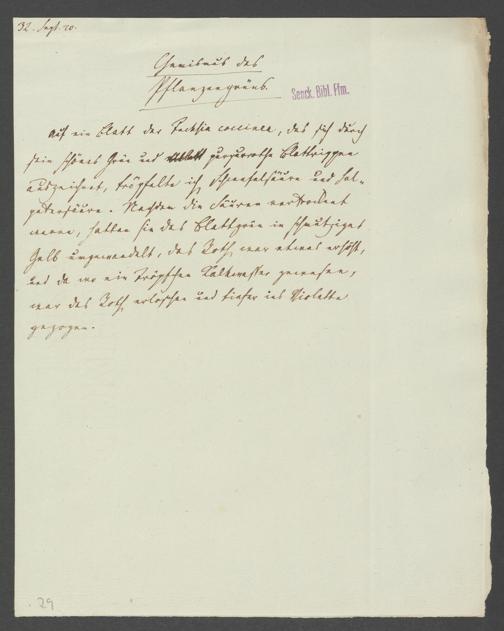 32. Sept. 20.
Chemismus des
Pflanzengrüns.
Senck. Bibl. Ffm.
Auf ein Blatt der Fuchsia coccinea, das sich durch
sein schönes Grün und purpurrothe Blattrippen
auszeichnet, tröpfelte ich Schwefelsäure und Sal-
petersäure. Nachdem die Säuren vertrocknet
waren, hatten sie das Blattgrün in schmutziges
Gelb umgewandelt, das Roth war etwas erhöht,
und da wo ein Tröpfchen Kalkwasser gewesen,
war das Roth erloschen und tiefer ins Violette
gezogen.
29